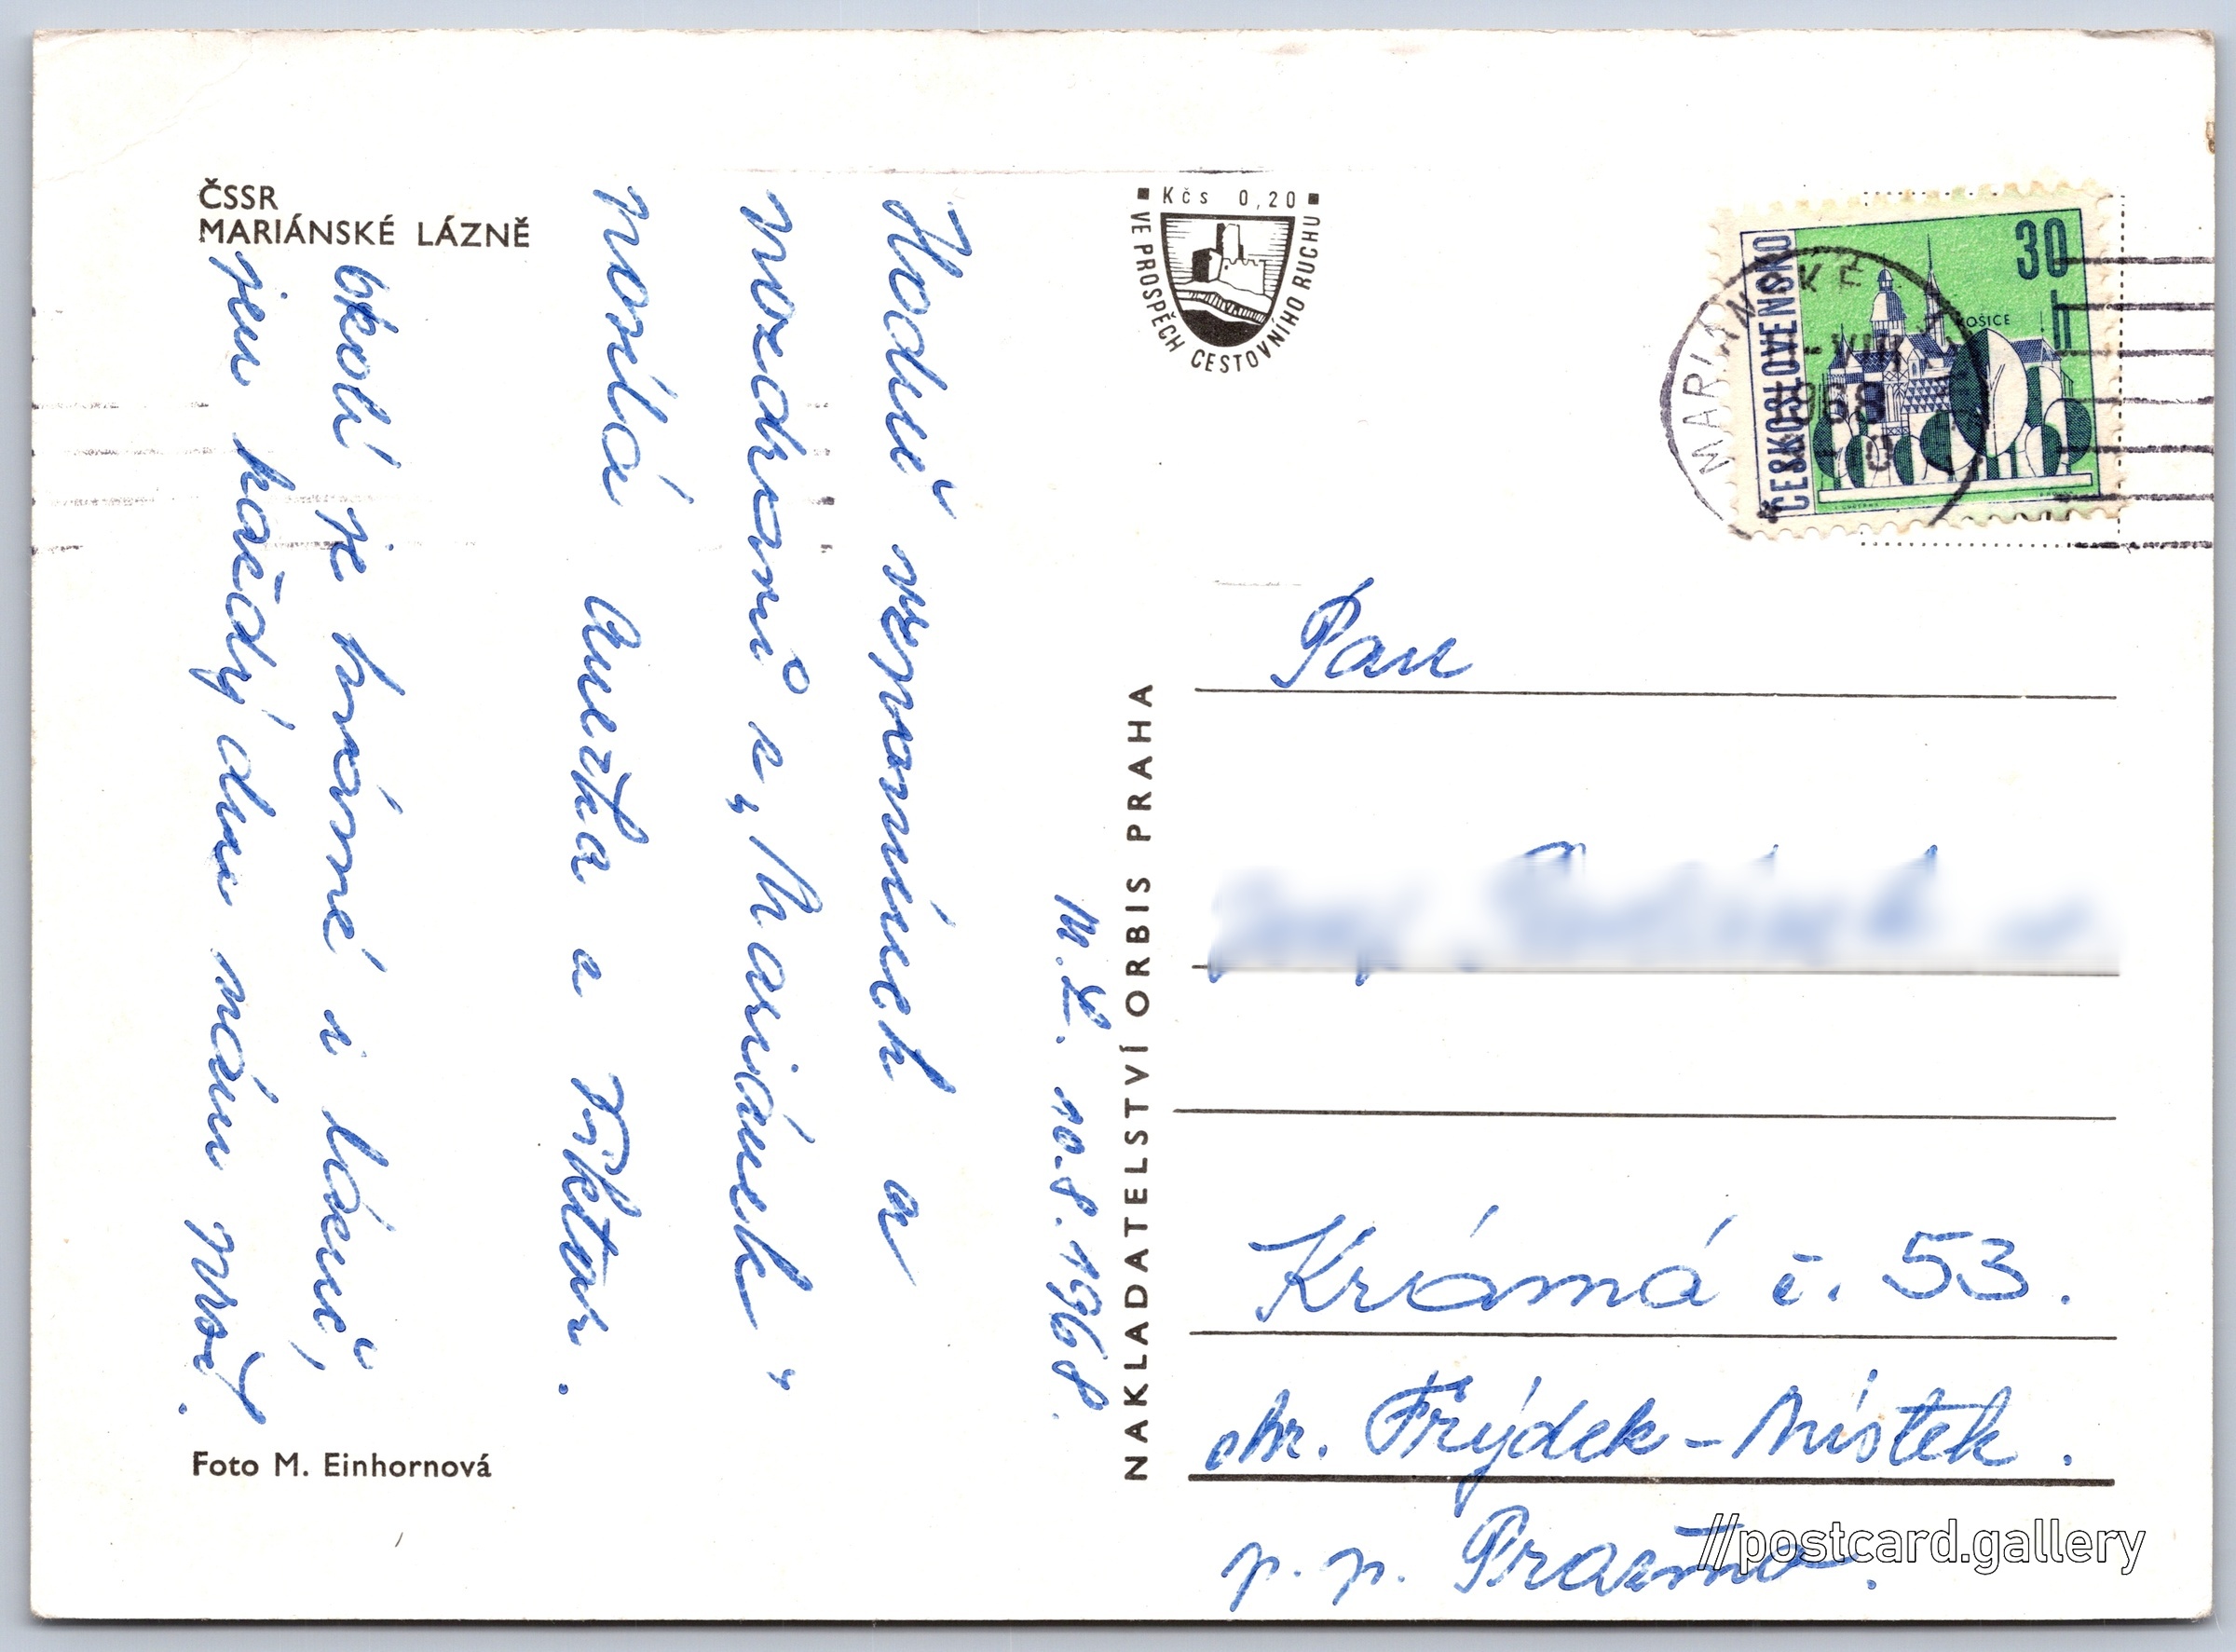 ČSSR
MARIÁNSKÉ LÁZNĚ
M.L. 10.8.1968.
Hodně vzpomínek a
pozdravů z „Mariánek"
posílá Anežka a Viktor.
Okolí je krásné i lázně,
jen každý den nám prší.
Foto M. Einhornová
NAKLADATELSTVÍ ORBIS PRAHA
Kčs 0,20
VE PROSPĚCH CESTOVNÍHO RUCHU
ČESKOSLOVENSKO
30 h
KOŠICE
MARIÁNSKÉ
Pan
Krásná č. 53.
okr. Frýdek-Místek.
p. p. Pražmo.
//postcard.gallery